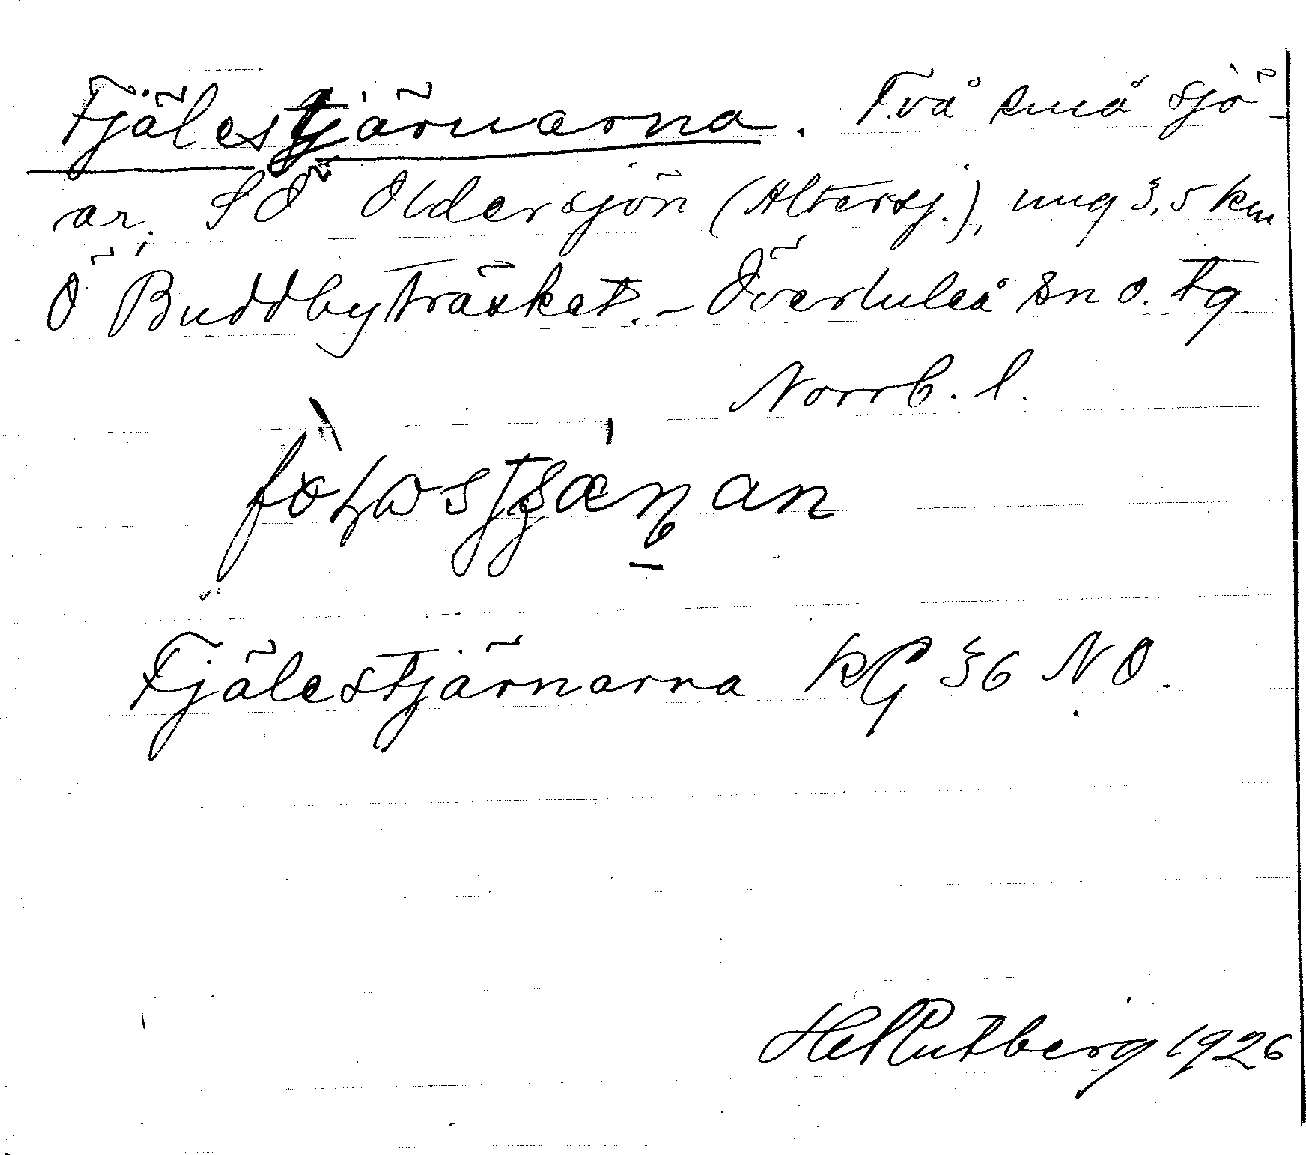 Fjälestjärnarna. Två små sjö-
ar, SÖ Oldersjön (Altersj.), ung 3,5 km
Ö Buddbyträsket. – Överluleå sn o. tg
Norrb. l.
Fjälestjärnarna kG 36 NO.
1926